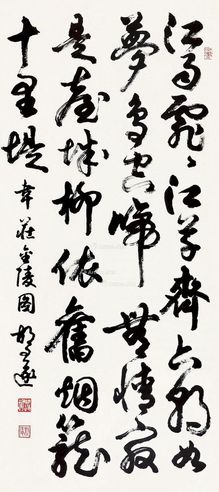 江雨霏〻江草齊六朝如
夢鳥空啼無情最
是臺城柳依舊烟籠
十里堤 韋莊金陵圖 胡問遂